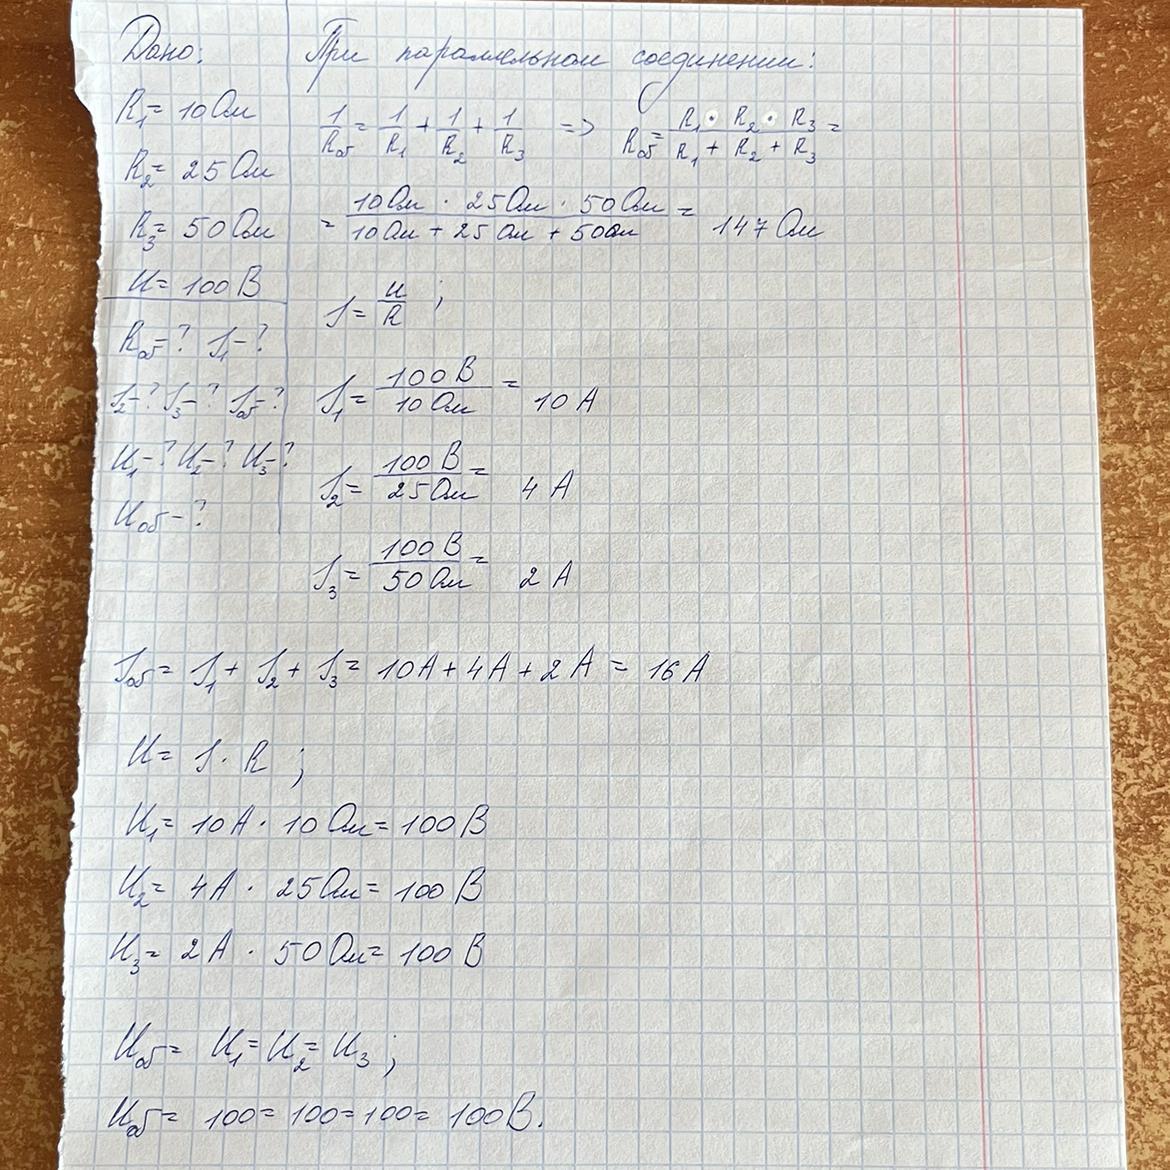 Дано:
R₁ = 10 Ом
R₂ = 25 Ом
R₃ = 50 Ом
U = 100 В
Rоб - ? I₁ - ?
I₂ - ? I₃ - ? Iоб - ?
U₁ - ? U₂ - ? U₃ - ?
Uоб - ?
При параллельном соединении:
1/Rоб = 1/R₁ + 1/R₂ + 1/R₃ => Rоб = (R₁ · R₂ · R₃)/(R₁ + R₂ + R₃) =
= (10 Ом · 25 Ом · 50 Ом)/(10 Ом + 25 Ом + 50 Ом) = 147 Ом
I = U/R ;
I₁ = 100 В/10 Ом = 10 А
I₂ = 100 В/25 Ом = 4 А
I₃ = 100 В/50 Ом = 2 А
Iоб = I₁ + I₂ + I₃ = 10 А + 4 А + 2 А = 16 А
U = I · R ;
U₁ = 10 А · 10 Ом = 100 В
U₂ = 4 А · 25 Ом = 100 В
U₃ = 2 А · 50 Ом = 100 В
Uоб = U₁ = U₂ = U₃ ;
Uоб = 100 = 100 = 100 = 100 В.